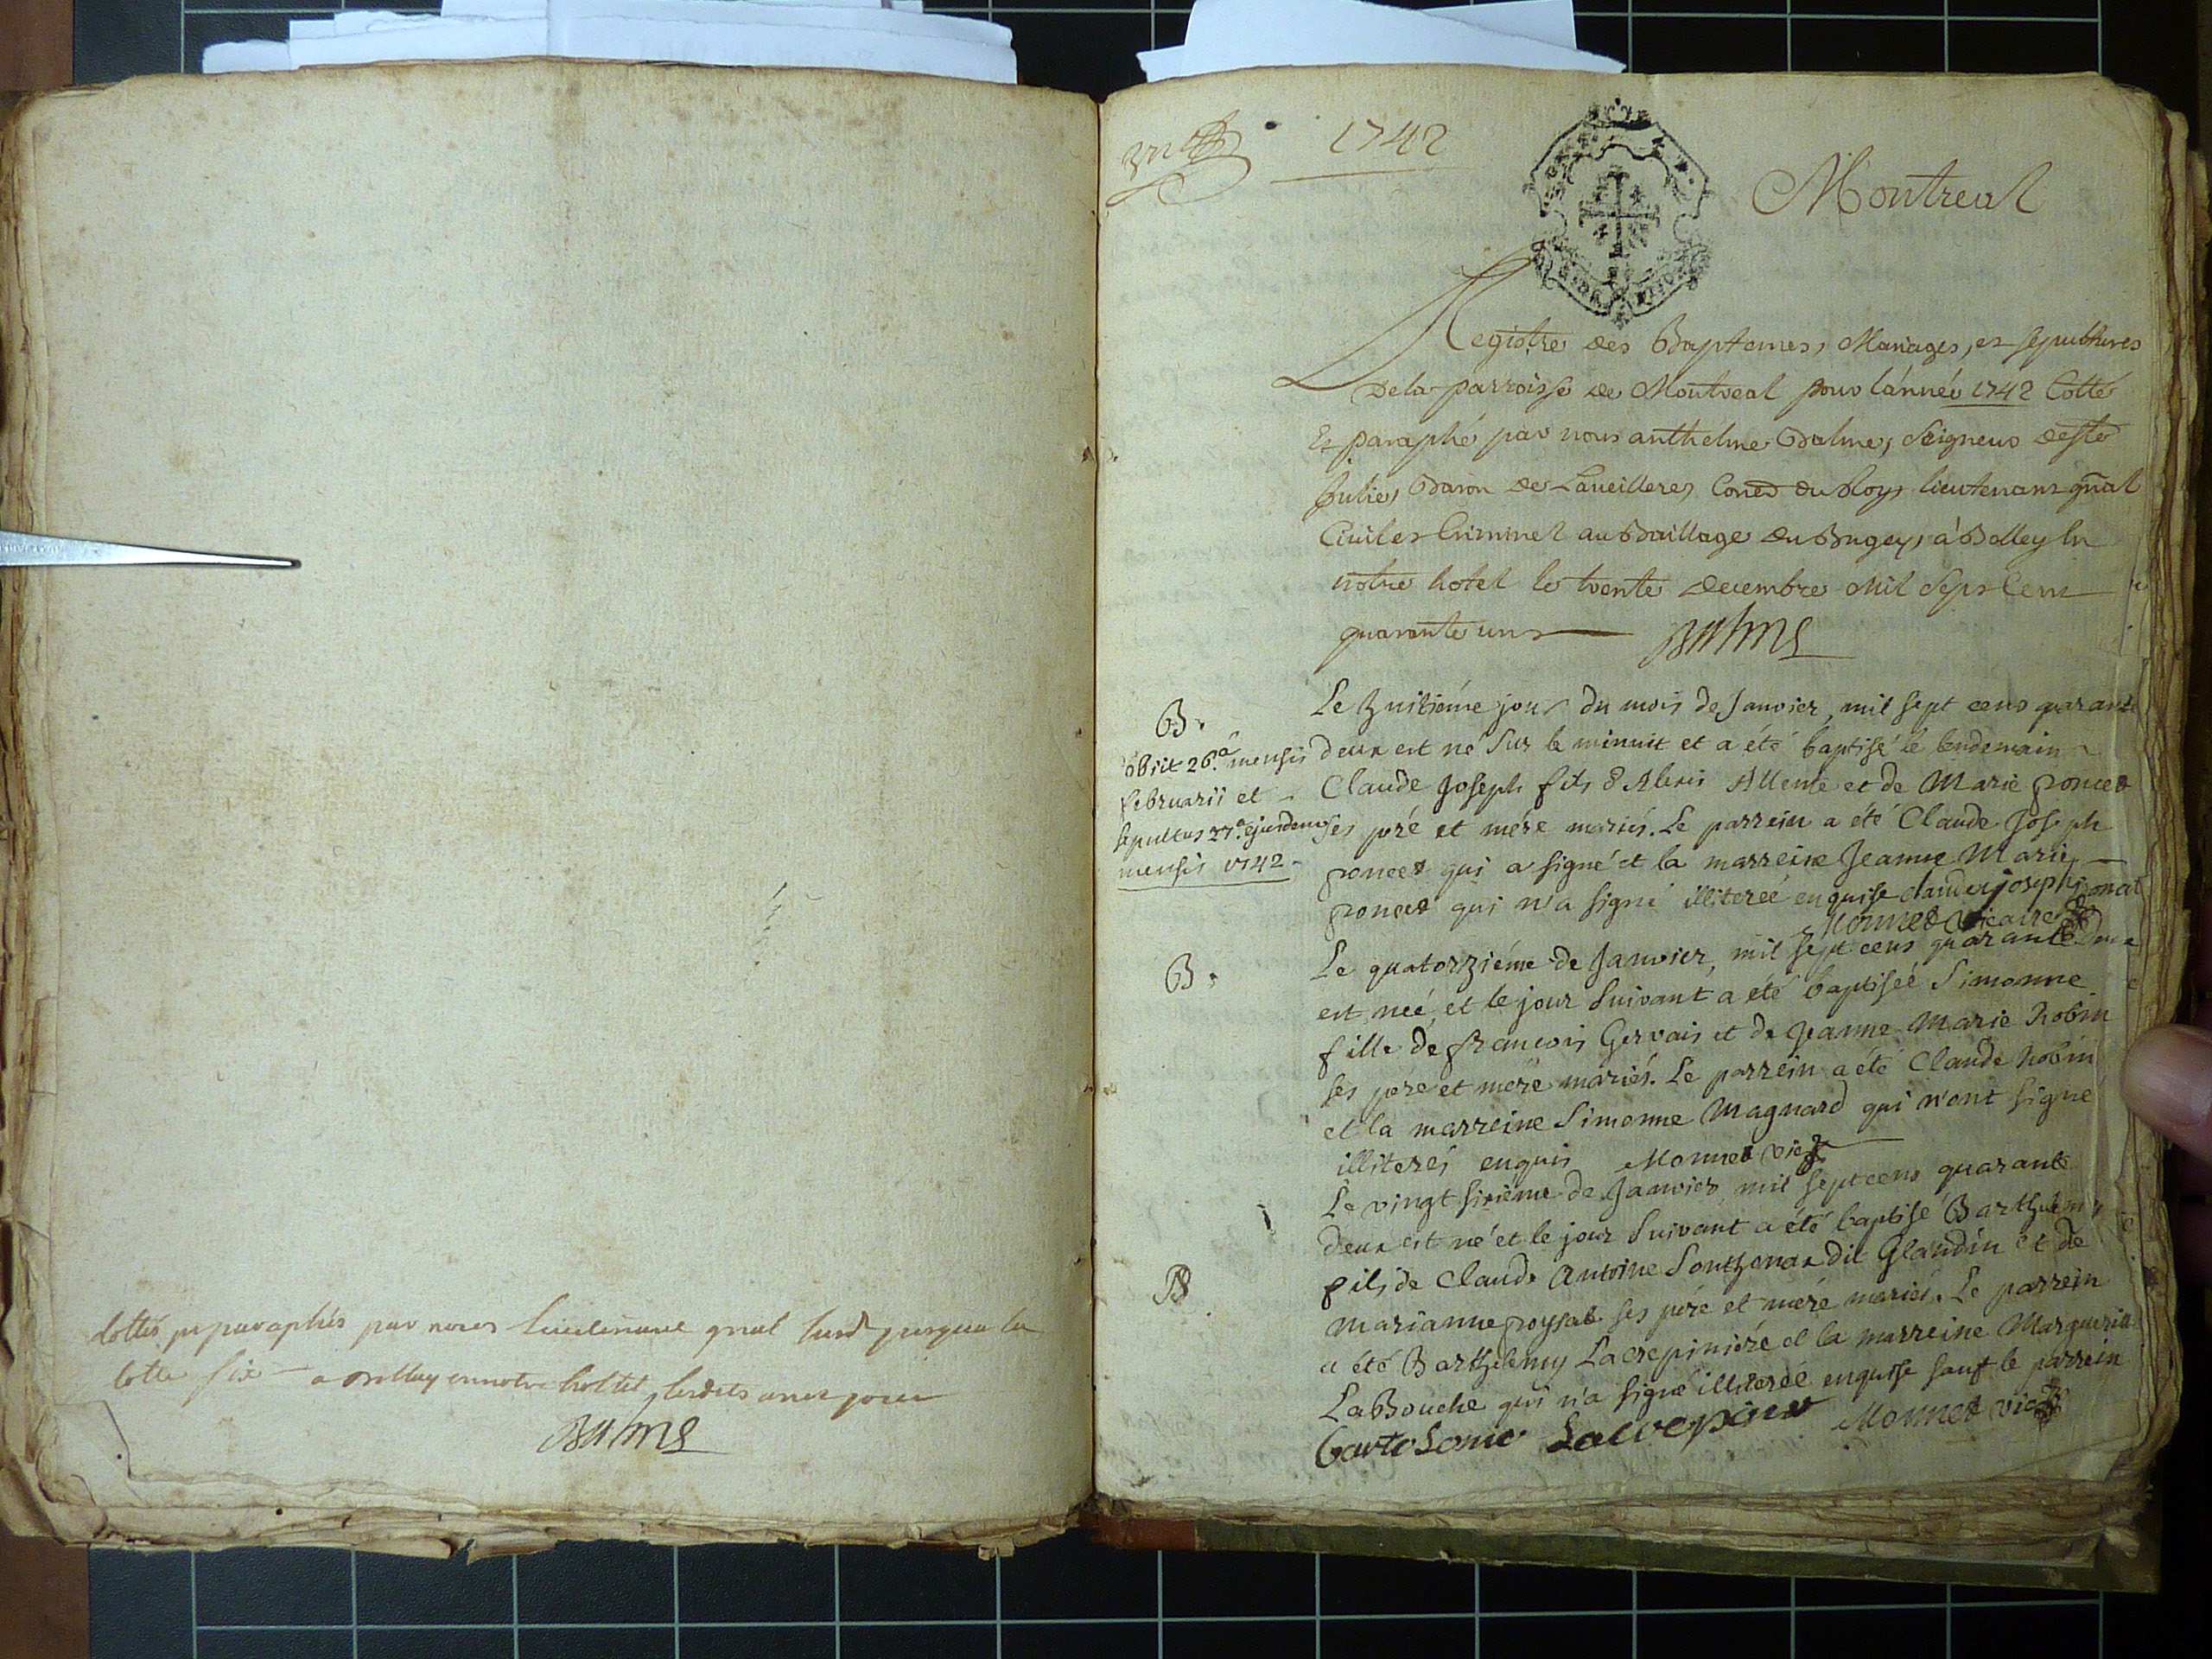 Cottés et paraphés par nous Lieutenant gnal jusqua la
Cotte six a Belley en notre hottel lesdits an et jour
Balme
1742
Montreal
Registre des Baptemes, Mariages, et sepultures
De la parroisse de Montreal pour l'année 1742 Cotté
Et paraphé par nous anthelme Balme, Seigneur de Ste
Julie, Baron de Laveilleres Coner du Roy, lieutenant gñal
Civil et Criminel au Bailliage du Bugey, à Belley En
notre hotel le trente decembre Mil Sept Cent
quarante un Balme
B.
obiit 26.a mensis
februarii et
sepultus 27.a ejusdem
mensis 1742
Le huitiéme jour du mois de Janvier, mil sept cens quarante
deux est né sur le minuit et a été baptisé le lendemain
Claude Joseph fils d'Alexis Allente et de Marie poncet
ses pere et mere mariés. Le parrein a été Claude Joseph
poncet qui a signé et la marreine Jeanne Marie
poncet qui n'a signé illiterée enquise claude joseph poncet
Monnet vicaire
B.
Le quatorziéme de Janvier, mil sept cens quarante deux
est née, et le jour suivant a été baptisée Simonne
fille de francois Gervais et de Jeanne Marie Robin
ses pere et mere mariés. Le parrein a été Claude Robin
et la marreine Simonne Magnard qui n'ont signé
illiterés enquis Monnet vic
Le vingt sixiéme de Janvier mil sept cens quarante
deux est né et le jour suivant a été baptisé Barthelemy
B
fils de Claude Antoine Sonthonax dit Glandin et de
Marianne poysat ses pere et mere mariés. Le parrein
a été Barthelemy Lacrepiniére et la marreine Marguerite
LaBouche qui n'a signé illiterée enquise sauf le parrein
Monnet vic